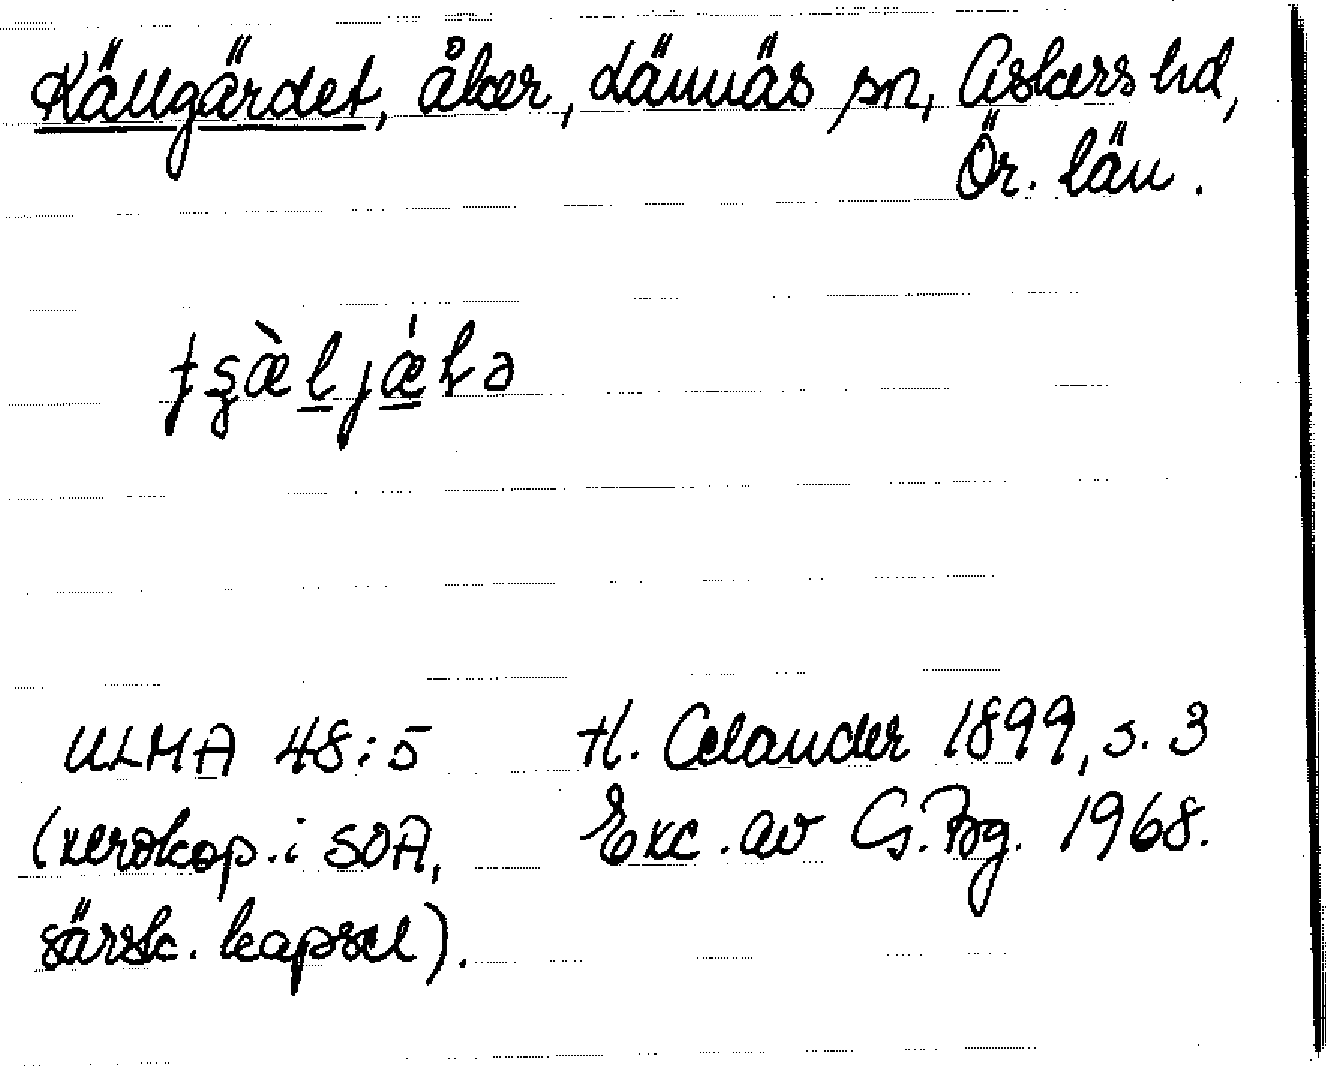 Källgärdet, åker, Lännäs sn, Askers hd,
Ör. län.
ULMA 48:5 H. Celander 1899, s. 3
(xerokop. i SOA, Exc. av G. Bg. 1968.
särsk. kapsel).